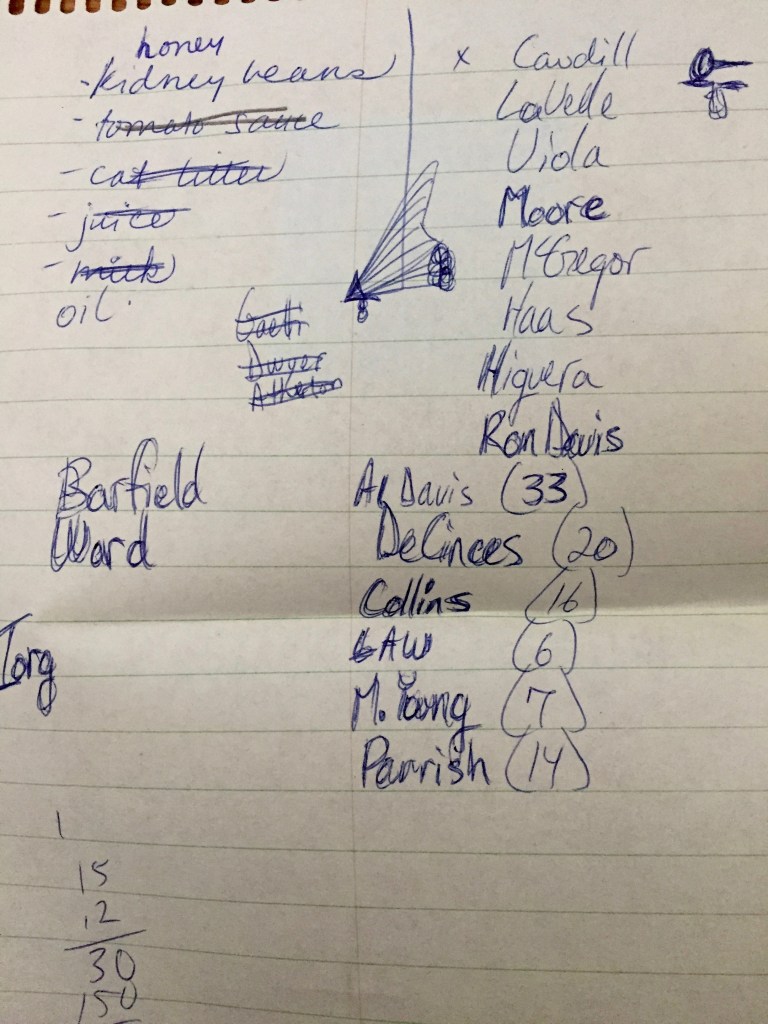 honey
- kidney beans
- tomato sauce
- cat litter
- juice
- milk
oil.
Gaetti
Dwyer
Atherton
x Caudill
LaVelle
Viola
Moore
McGregor
Haas
Higuera
Ron Davis
Barfield
Ward
Iorg
Al Davis (33)
DeCinces (20)
Collins (16)
GAW (6)
M. Young (7)
Parrish (14)
1
15
12
30
150